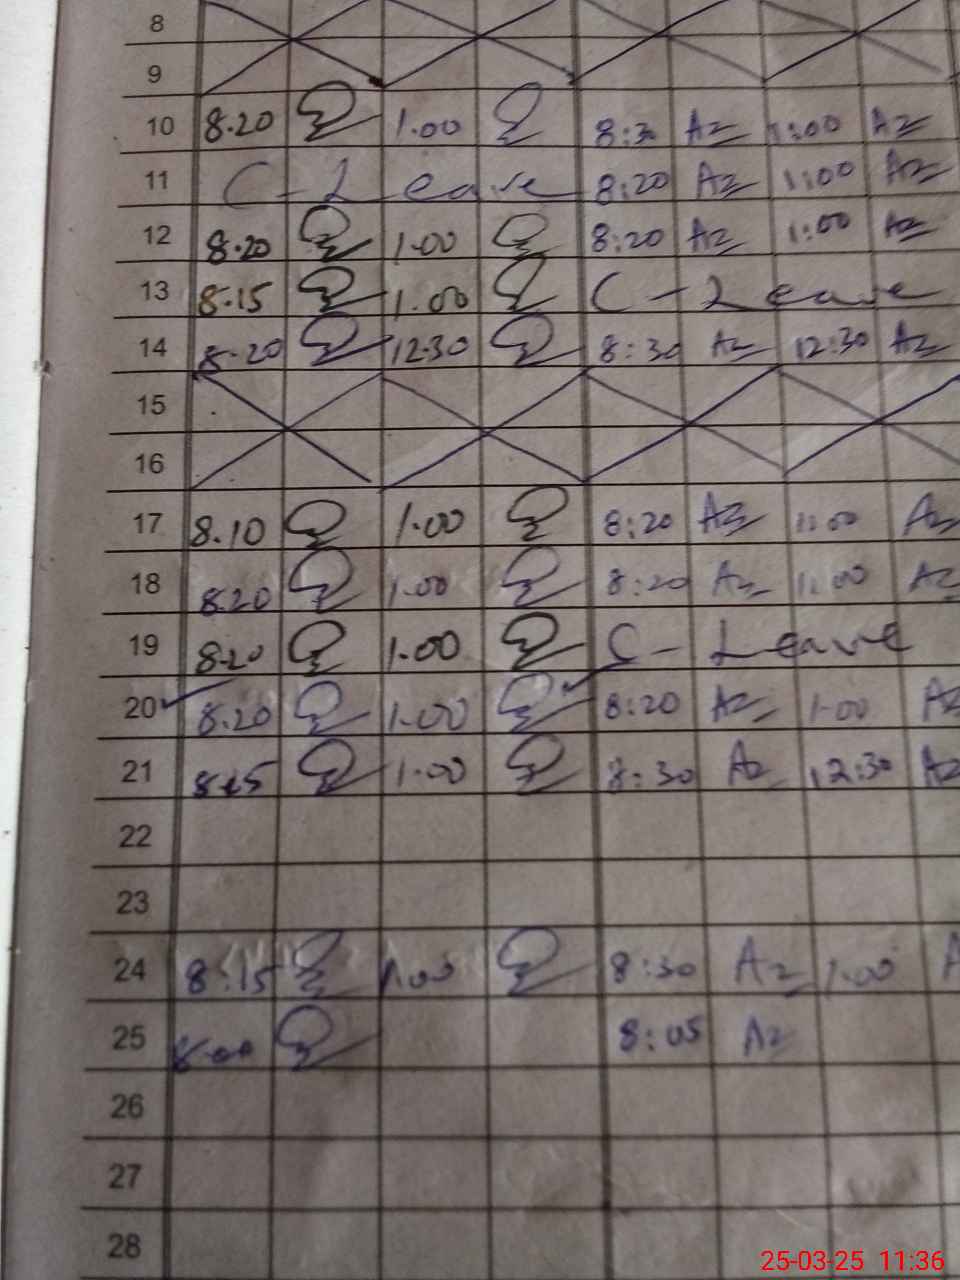 8
9
10 8.20 1.00 8:30 Az 1:00 Az
11 C-Leave 8:20 Az 1:00 Az
12 8.20 1.00 8:20 Az 1:00 Az
13 8.15 1.00 C-Leave
14 8.20 12.30 8:30 Az 12:30 Az
15
16
17 8.10 1.00 8:20 Az 1:00 Az
18 8.20 1.00 8:20 Az 1:00 Az
19 8.20 1.00 C-Leave
20 8.20 1.00 8:20 Az 1.00 Az
21 8.15 1.00 8:30 Az 12:30 Az
22
23
24 8:15 1.00 8:30 Az 1.00 A
25 8.00 8:05 Az
26
27
28
25-03-25 11:36